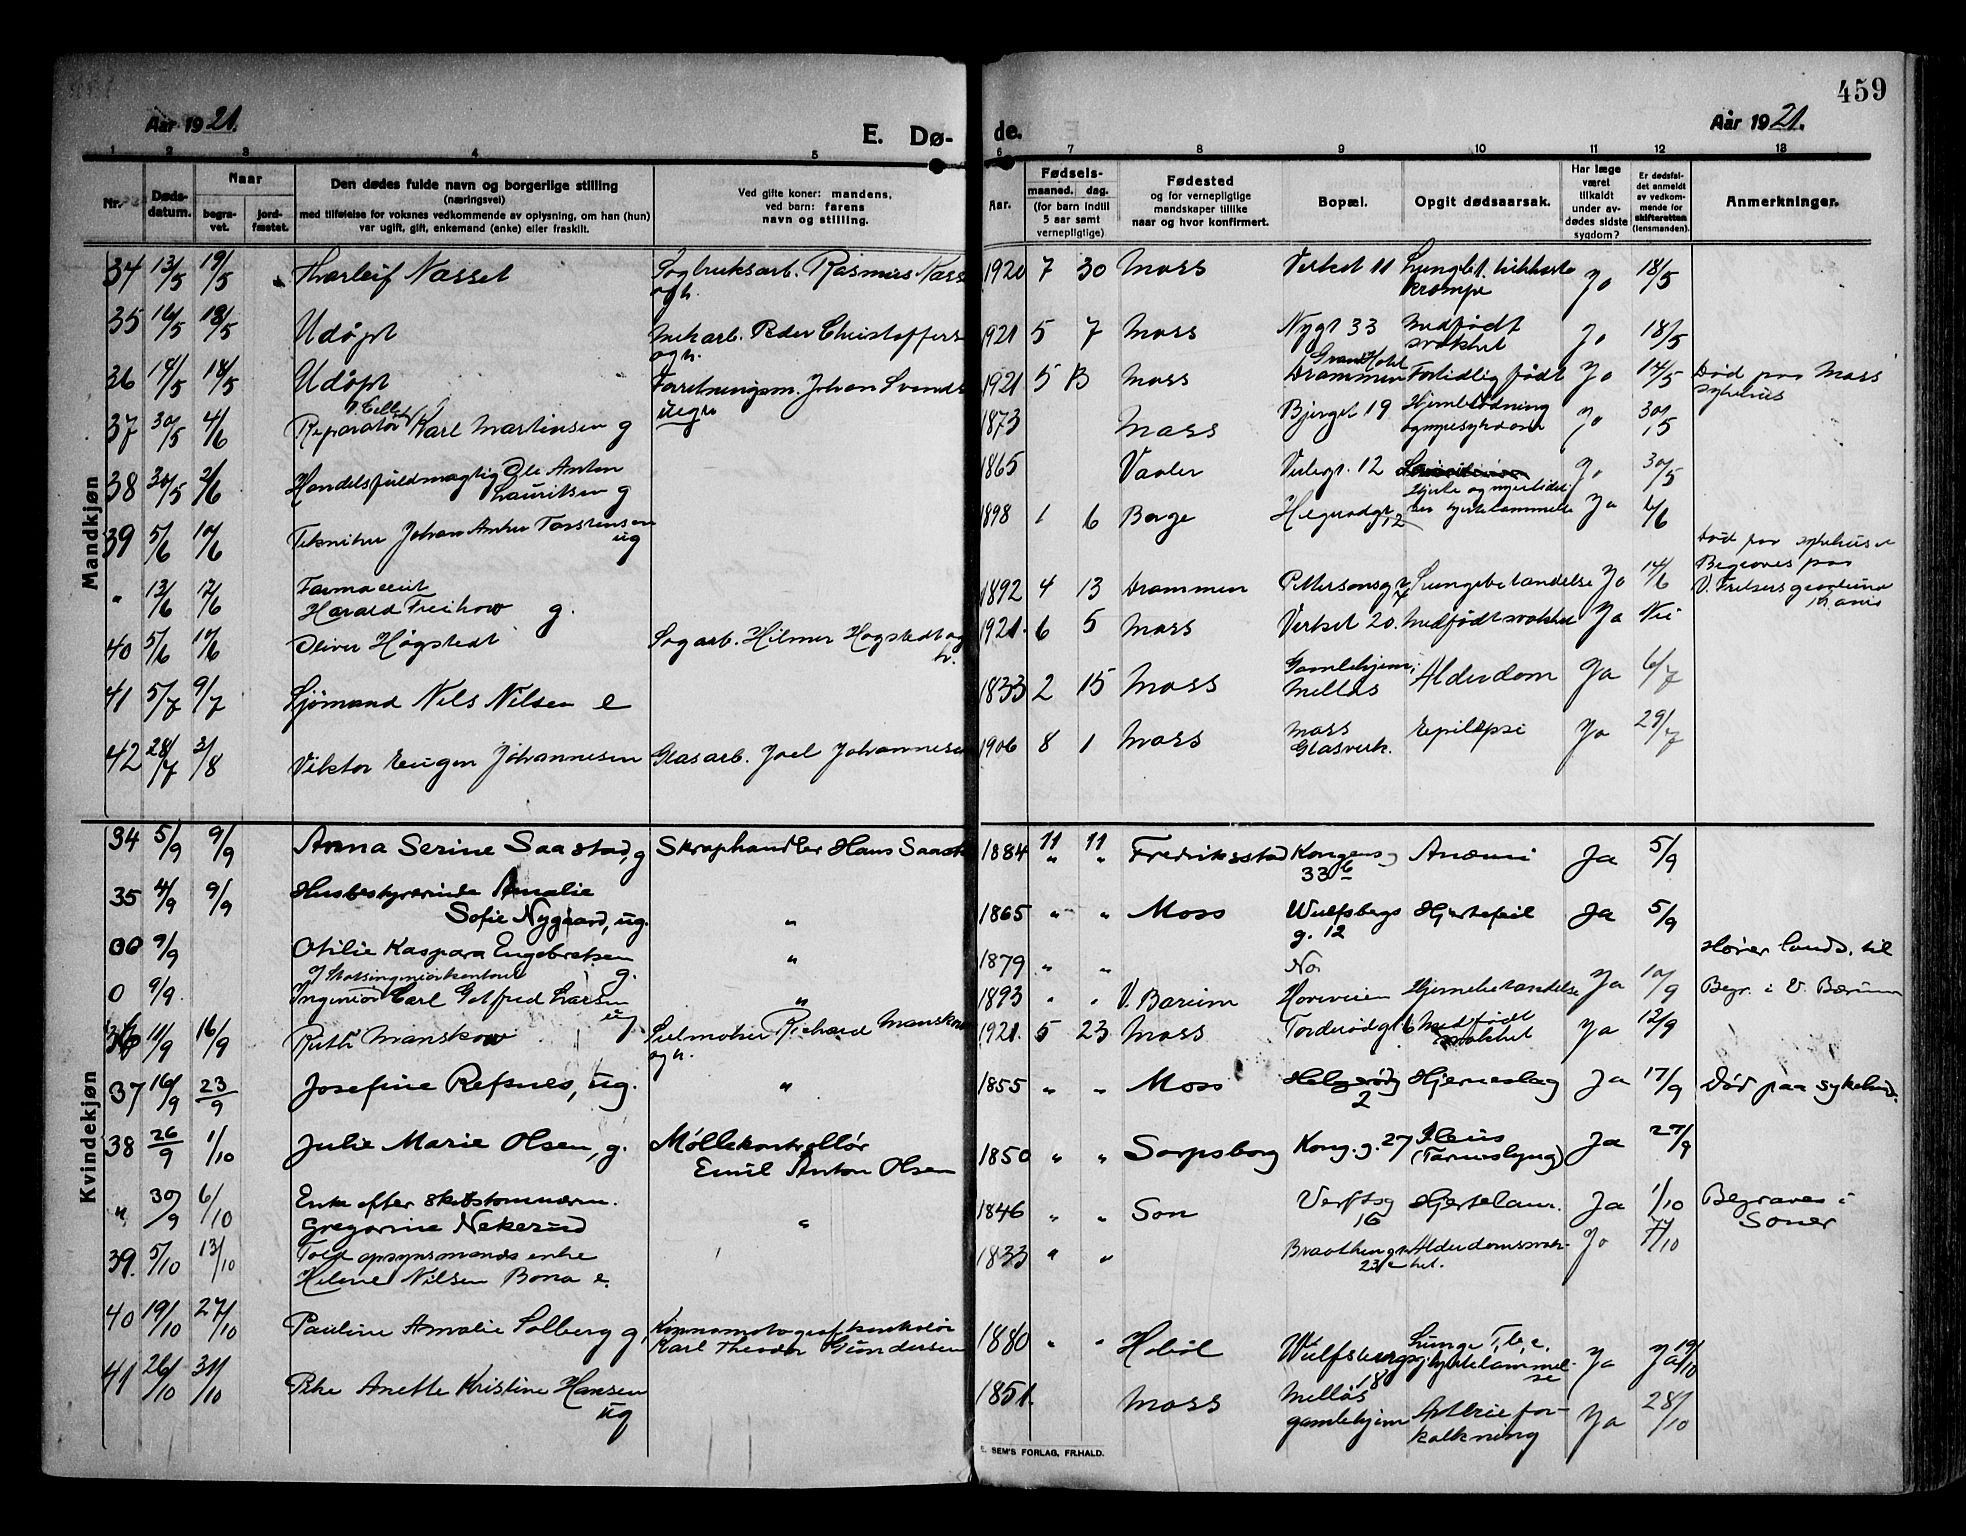 459
Aar 1921.
E. Dø-
de.
Aar 1921.
1 2 3 4 5 6 7 8 9 10 11 12 13
Nr.
Døds-
datum.
Naar
begra-
vet.
jord-
fæstet.
Den dødes fulde navn og borgerlige stilling
(næringsvei)
med tilføielse for voksnes vedkommende av oplysning, om han (hun)
var ugift, gift, enkemand (enke) eller fraskilt.
Ved gifte koner: mandens,
ved barn: farens
navn og stilling.
Aar.
Fødsels-
maaned. dag.
(for barn indtil
5 aar samt
vernepligtige)
Fødested
og for vernepligtige
mandskaper tillike
naar og hvor konfirmert.
Bopæl.
Opgit dødsaarsak.
Har læge
været
tilkaldt
under av-
dødes sidste
sygdom?
Er dødsfal-
det anmeldt
av vedkom-
mende for
skifteretten
(lensmanden).
Anmerkninger.
Mandkjøn
34 13/5 19/5 Thorleif Næsset Sagbruksarb. Rasmus Næss 1920 7 30 Moss Verket 11 Lungbet. Ja 18/5
og h. krampe
35 18/5 Udøpt Mekarb. Peder Christoffers 1921 5 7 Moss Nygt 33 Medfødt Ja 18/5
og h. svakhet
36 14/5 18/5 Udøpt Forretningsm. Johan Svends 1921 5 13 Moss Grand Hotel
Drammen For tidlig født Ja 14/5 Død paa Moss
ug sykehus
37 30/5 4/6 Reparatør Karl Martinsen g 1873 Moss Bjerget 19 Hjerneblødning Ja 30/5
38 30/5 2/6 Handelsfuldmægtig Ole Anton 1865 Vaaler Verlegt. 12 Ja 30/5
Lauritsen g
39 5/6 10/6 Tekniker Johan Anker Torstensen 1898 1 6 Borge hjertelammelse Ja 6/6
ug
" 13/6 17/6 Farmaceut 1892 4 13 Drammen Pettersonsgt 7 Lungebetændelse Ja 14/6 Død paa sykehuset
Harald Freihow g. Begraves paa
V. Frelsers gravlund
40 5/6 10/6 Oliver Høgstedt Sagarb. Hilmer Høgstedt og 1921. 6 5 Moss Verket 20. Medfødt svakhet Ja Nei
h.
41 5/7 9/7 Sjømand Nils Nilsen e 1833 2 15 Moss Gamlehjem, Alderdom Ja 6/7
Melløs
42 28/7 3/8 Viktor Eugen Johannesen Glasarb. Joel Johannesen 1906 8 1 Moss Moss Epilepsi Ja 29/7
Glasverk.
Kvindekjøn
34 5/9 9/9 Anna Serine Saastad, g Skraphandler Hans Saast 1884 11 11 Fredriksstad Kongens g Anæmi Ja 5/9
" " 33 b
35 4/9 9/9 Husbestyrerinde Amalie
Sofie Nygaard, ug. " 1865 " " Moss Wulfsbergs Hjertefeil Ja 5/9
g. 12
9/9 Otilie Kaspara Engebretsen " 1879 " " No Hører lands. til
g.
0 9/9. Ingeniør Carl Gotfred Larsen " 1893 " " V. Bærum Hoveveien Hjernebetændelse Ja 10/9 Begr. i V. Bærum
ug
36 11/9 16/9 Ruth Manskow Richard Manskow 1921. 5 23 Moss Torderødgt 6 Medfødt Ja 12/9
og h. svakhet
37 16/9 23/9 Josefine Refsnes, ug. " 1855 " " Moss Helgerødg Hjerneslag Ja 17/9 Død paa sykehus.
2
38 26/9 1/10 Julie Marie Olsen, g. Møllekontrollør 1850 " " Sarpsborg Kong. g. 27 Ileus Ja 27/9
Emil Anton Olsen (Tarmslyng)
" 30/9 6/10 Enke efter skibstømmerm.
Gregorine Nekerud " 1846 " " Son Verftsg Hjertelam. Ja 1/10 Begraves i
16 Soner
39. 5/10 13/10 Toldopsynsmands enke 1833 " " Braathengt Alderdomssvak- Ja 7/10
Helene Nilsen Bona e. 23 het.
40 19/10 27/10 Pauline Amalie Solberg g, Kinematografkontrolør 1880 " " Hobøl Wulfsbergsg Lunge Tb.c. Ja Ja 19/10
Karl Theodor Gundersen 18 hjertelammel-
se
41 26/10 31/10 Anette Kristine Hansen 1851. Moss Melløs Arterie for- Ja 28/10
ug gamlehjem kalkning
E. SEM'S FORLAG, FR.HALD.